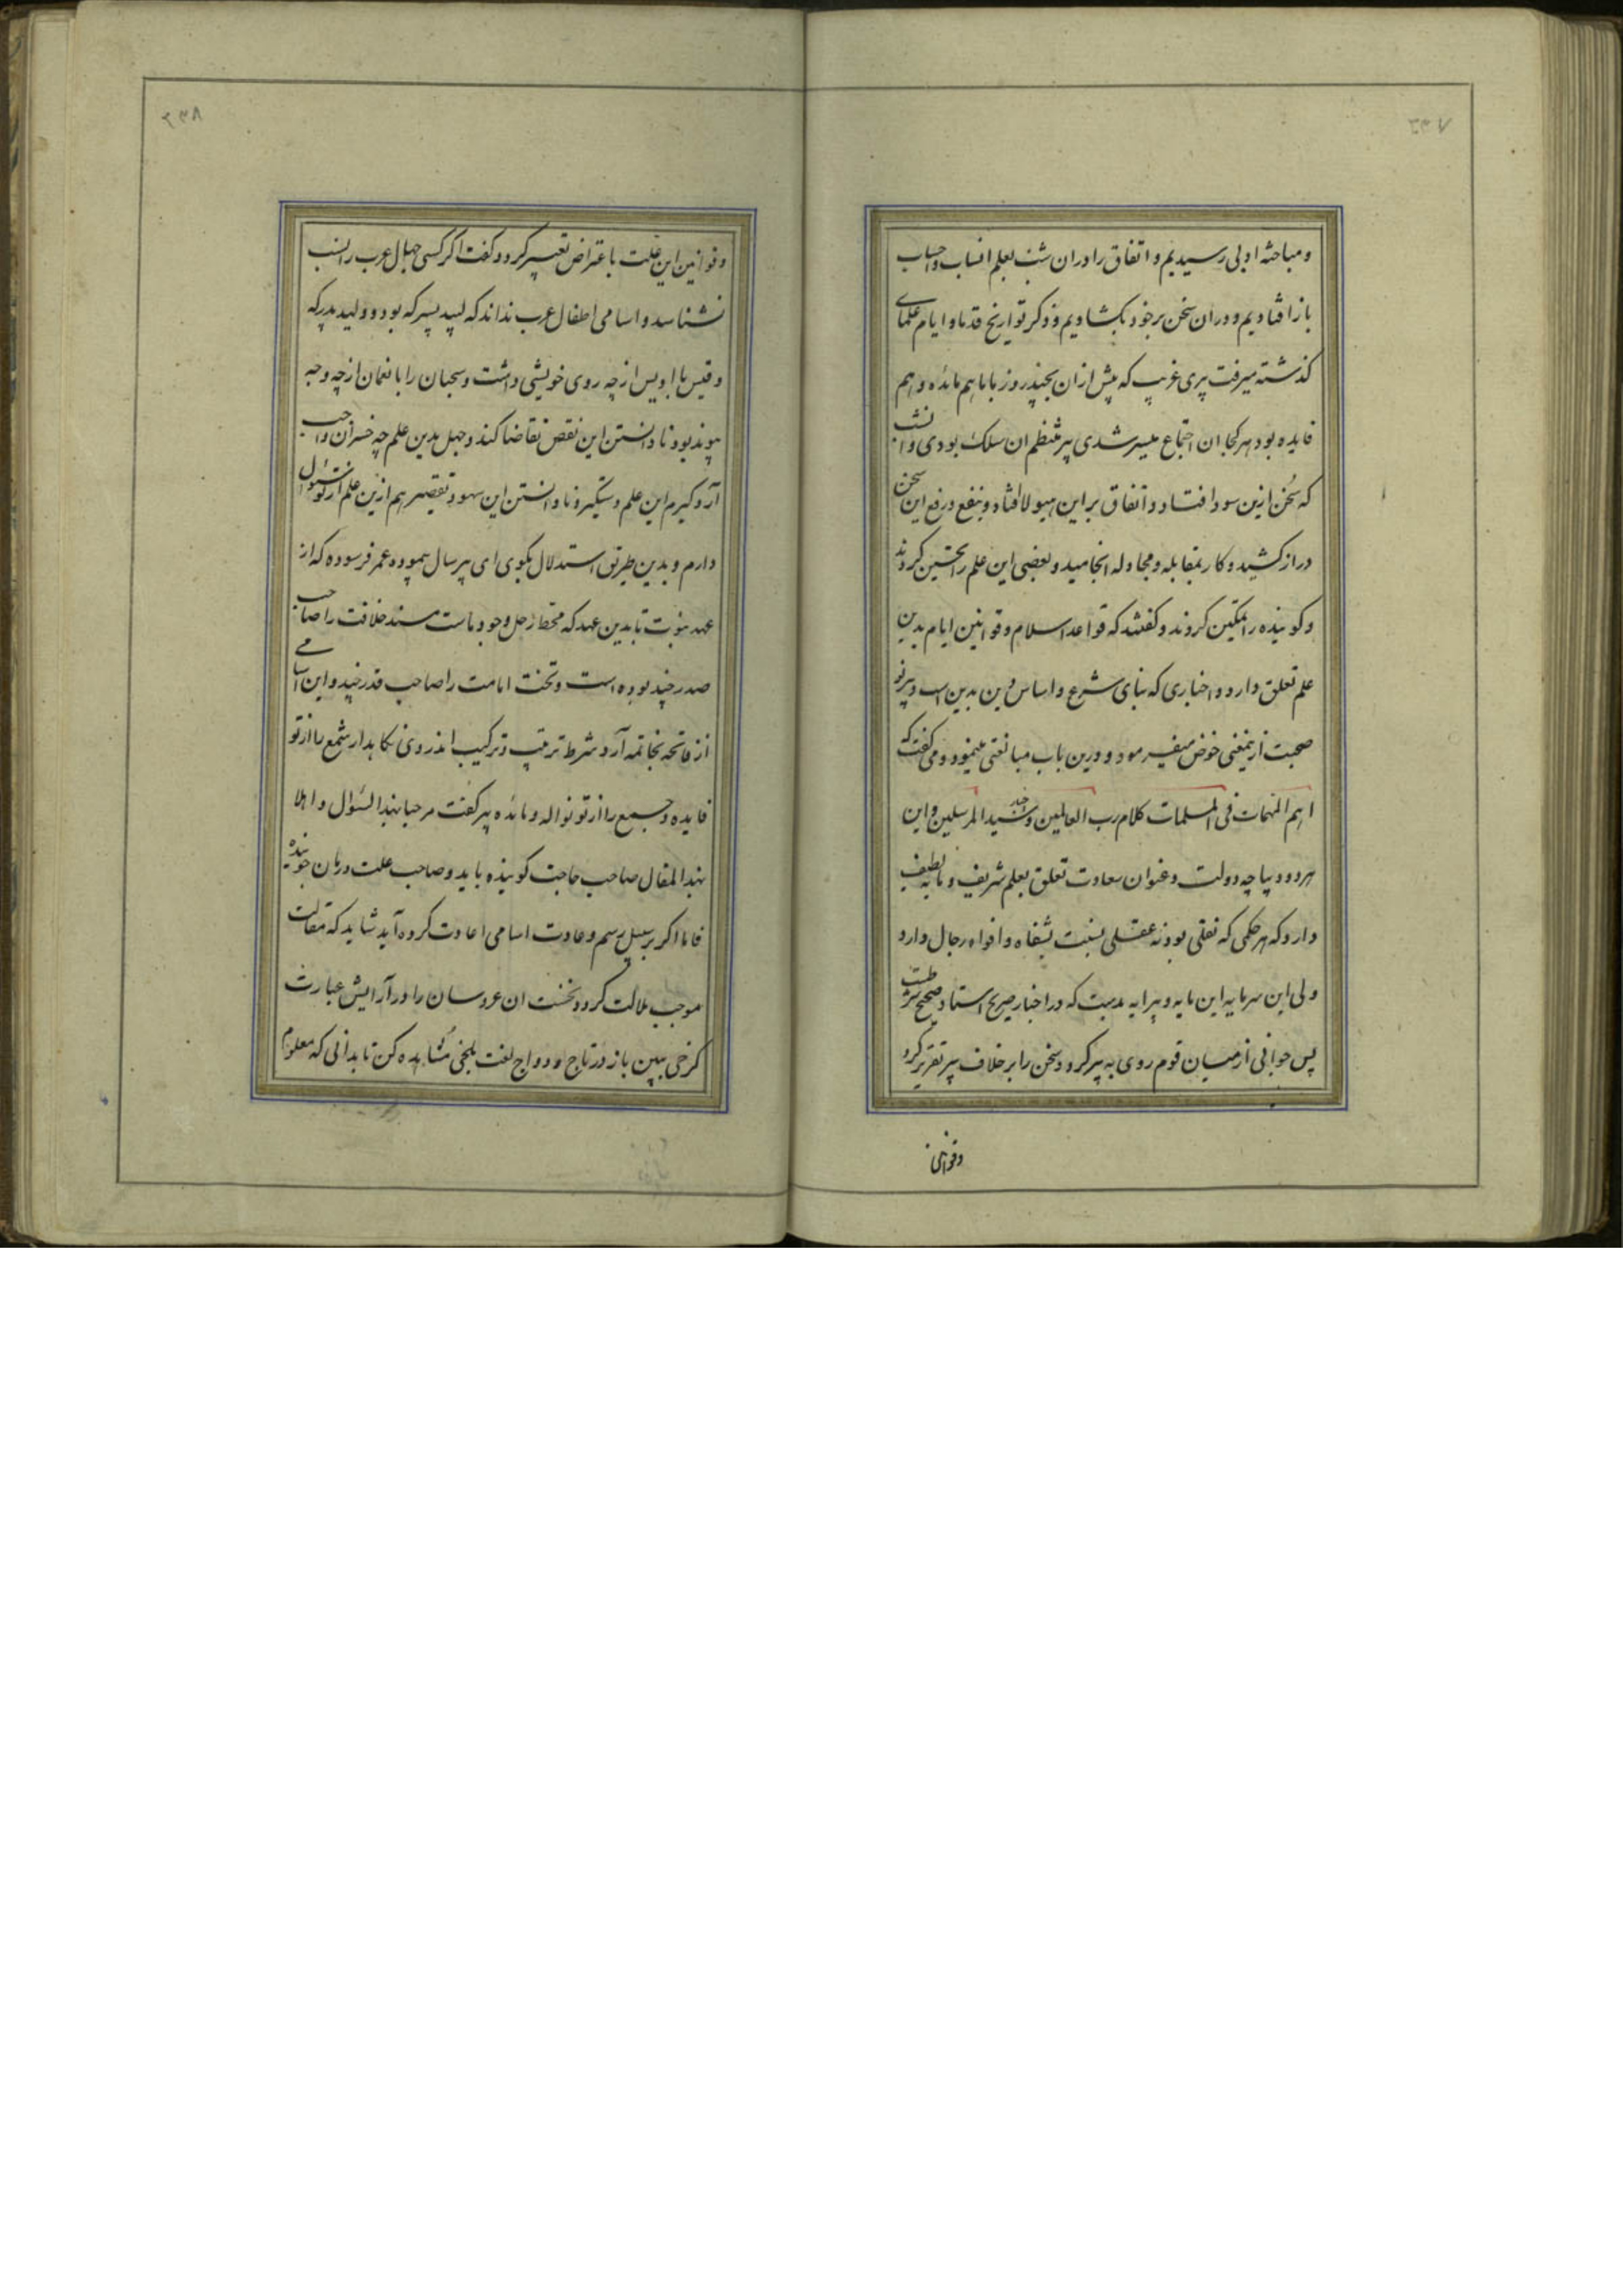 ۲۳۷
و مباحثه ادبی رسیدیم و اتفاق را در ان شب بعلم انساب و احساب
باز افتادیم و در ان سخن بر خود بکشادیم و ذکر تواریخ قدما و ایام علمای
کذشته میرفت پیری غریب که پیش از ان بچند روز با ما هم مائده و هم
فایده بود هر کجا ان اجتماع میسر شدی پیر منتظم ان سلک بودی و انشب
که سخن ازین سود افتاد و اتفاق بر این هیولا افتاد و بنفع و رفع این سخن
دراز کشید و کار بمقابله و مجادله انجامید و بعضی این علم را تحسین کردند
و کوینده را تمکین کردند و کفتند که قواعد اسلام و قوانین ایام بدین
علم تعلق دارد و اخباری که بنای شرع و اساس دین بدین است و پیر نو
صحبت ازینمعنی خوض میفرمود و درین باب مبالغتی مینمود و می کفت که
اهم المهمات فی المسلمات کلام رب العالمین و خبر سید المرسلین و این
هر دو دیباچه دولت و عنوان سعادت تعلق بعلم شریف و مایه لطیف
دارد که هر حکمی که نقلی بود نه عقلی نسبت بشفاه و افواه رجال دارد
ولی این سرمایه این مایه و پیرایه مدبیت که در اخبار صریح استاد صحیح شرطست
پس جوانی از میان قوم روی به پیر کرد و سخن را بر خلاف پیر تقریر کرد
و قوانین
۲۳۸
و قوانین این علت باعتراض تعبیر کرد و کفت اکر کسی جهال عرب را نسب
نشناسد و اسامی اطفال عرب نداند که لبید پسر که بود و ولید پدر که
و قیس با اویس از چه روی خویشی داشت و سحبان را با نعمان از چه وجه
پیوند بود نادانستن این نقص تقاضا کند و جهل بدین علم چه خسران واجب
آرد کیرم این علم دستگیر و نادانستن این سهو و تقصیر هم ازین علم از تو سئوال
دارم و بدین طریق استدلال بکوی ای پیر سال پیموده عمر فرسوده که از
عهد نبوت تا بدین عهد که محط رحل وجود ماست مسند خلافت را صاحب
صدر چند بوده است و تخت امامت را صاحب قدر چند و این اسامی
از فاتحه بخاتمه آرد شرط ترتیب و ترکیب اندر وی نکاهدار شمع را از تو
فایده و جمیع را از تو نواله و مائده پیر کفت مرحبا بهذا السئوال و اهلا
بهذا المقال صاحب حاجت کوینده باید و صاحب علت درمان جوینده
فاما اکر بر سبیل رسم و عادت اسامی اعادت کرده آید شاید که مقالت
موجب ملالت کردد نخست ان عروسان را در آرایش عبارت
کرخی ببین باز در تاج و دواج لغت بلخی مشاهده کن تا بدانی که معلوم